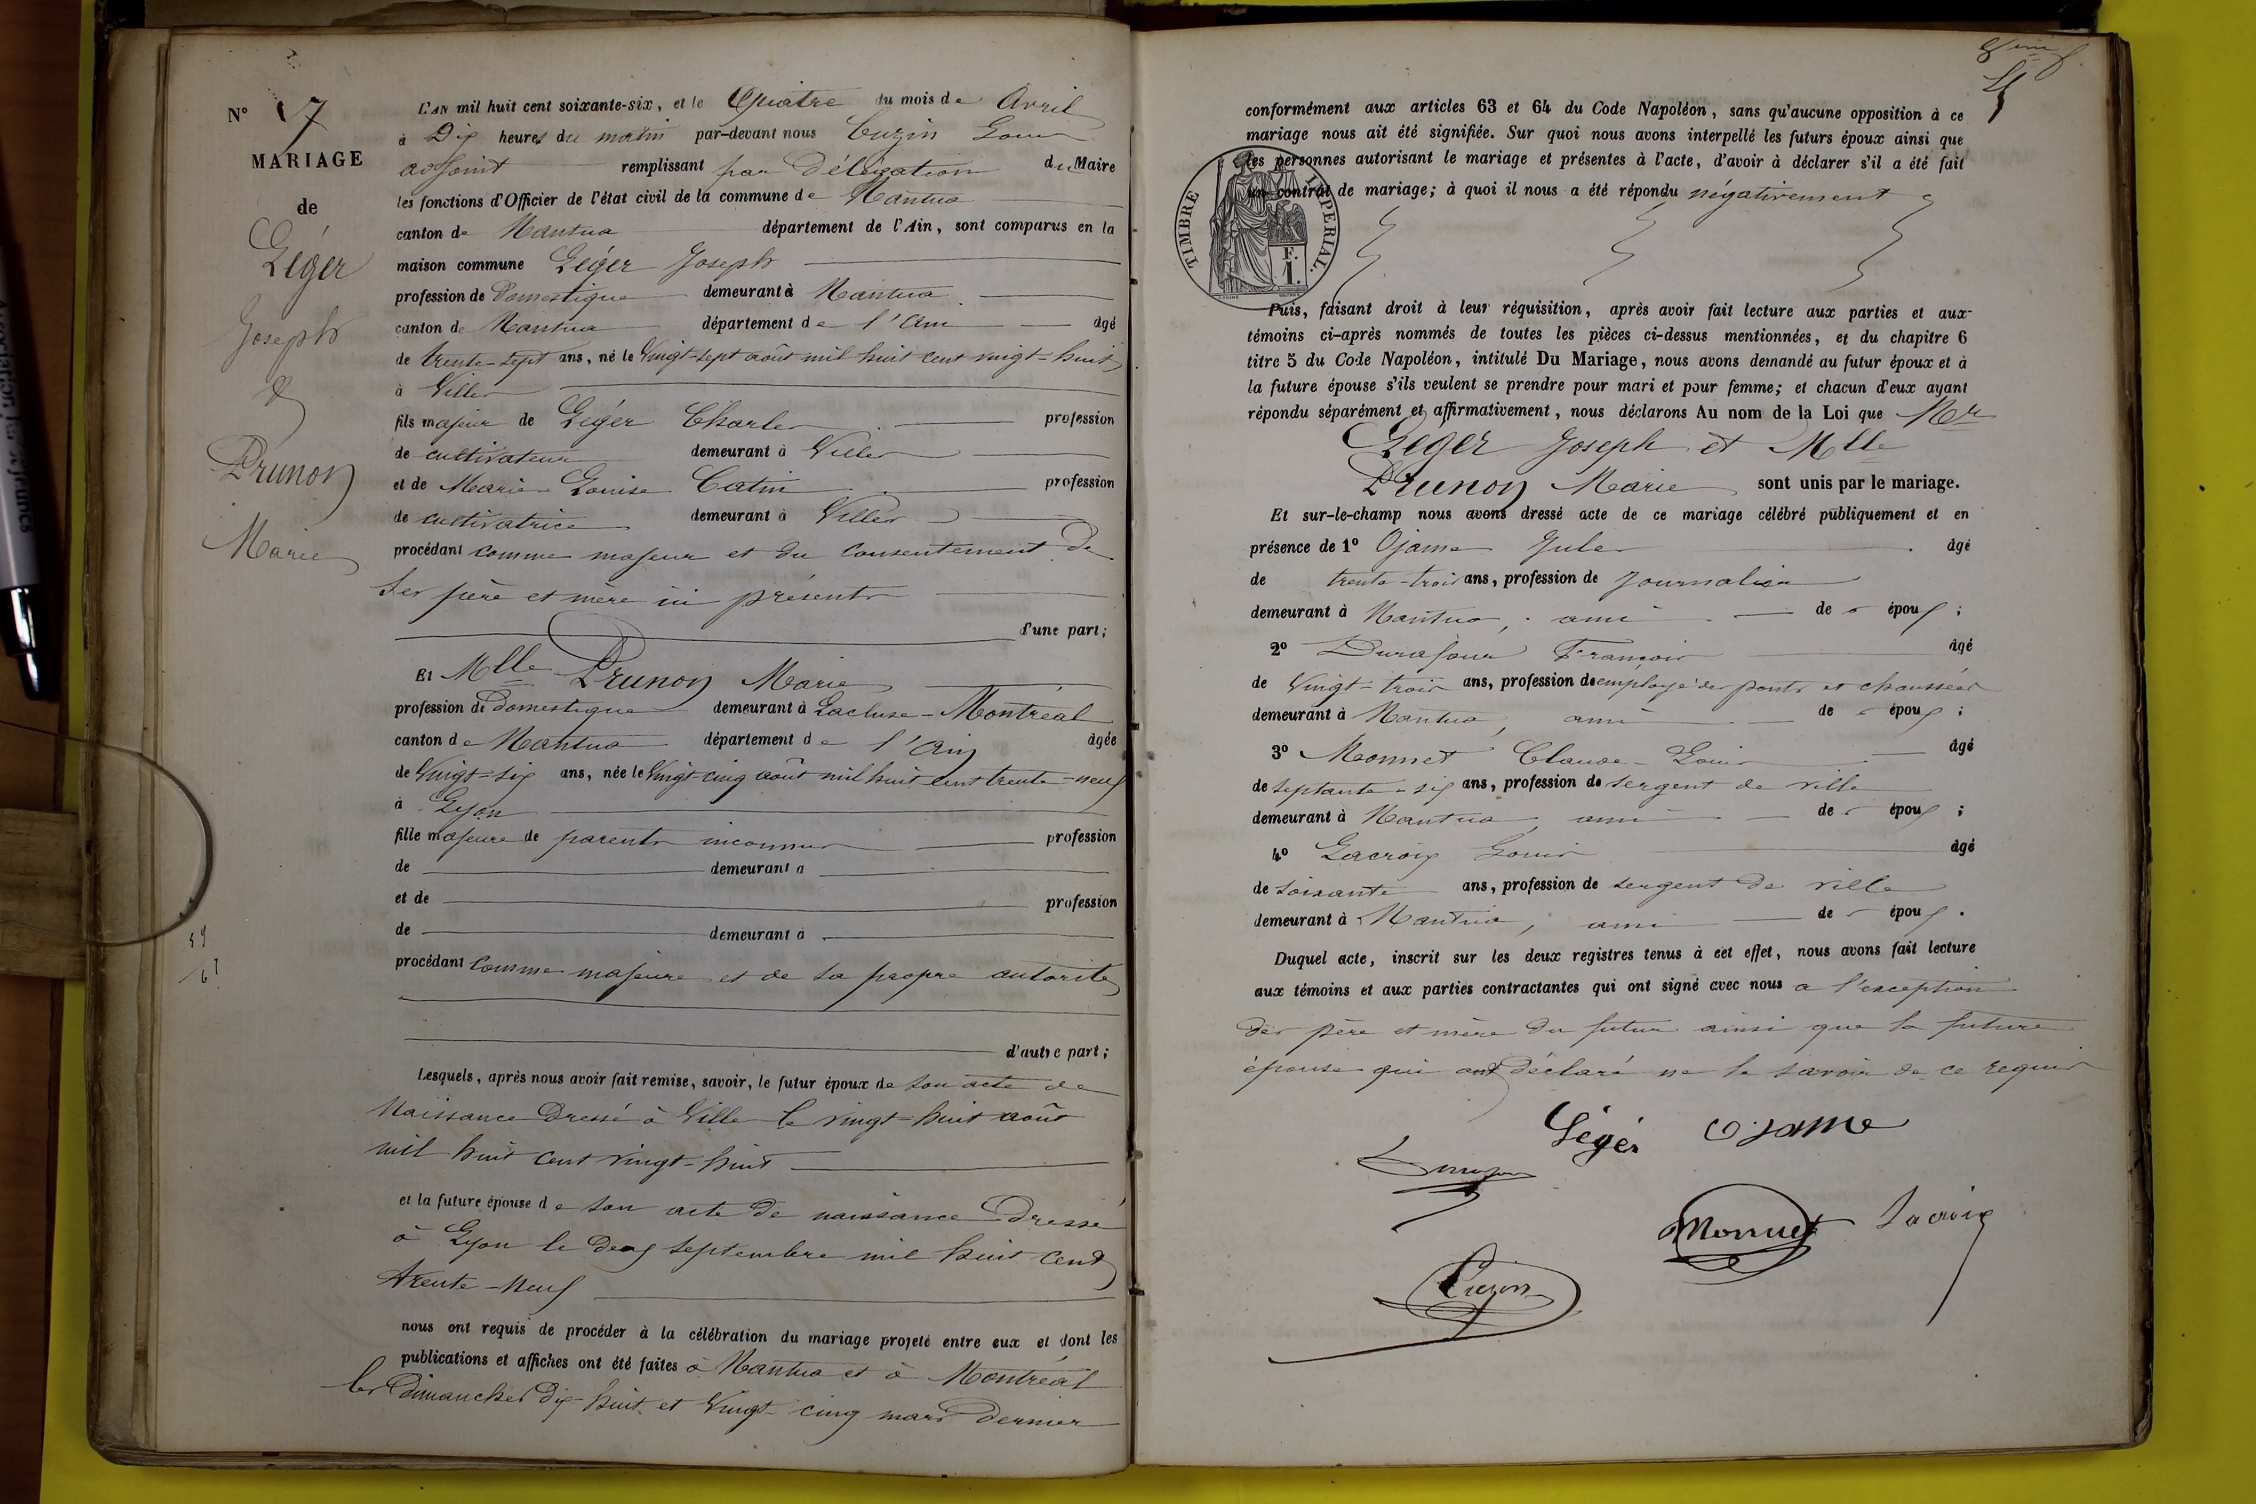 N° 17
MARIAGE
de
Léger
Joseph
&
Prunon
Marie
L'AN mil huit cent soixante-six, et le Quatre du mois de Avril
à Dix heures du matin par-devant nous Cuzin Louis
adjoint remplissant par délégation du Maire
les fonctions d'Officier de l'état civil de la commune de Nantua
canton de Nantua département de l'Ain, sont comparus en la
maison commune Léger Joseph
profession de Domestique demeurant à Nantua
canton de Nantua département de l'Ain âgé
de trente-sept ans, né le Vingt-sept août mil huit cent vingt=huit
à Villes
fils majeur de Léger Charles profession
de cultivateur demeurant à Villes
et de Marie Louise Catin profession
de cultivatrice demeurant à Villes
procédant comme majeur et du consentement de
ses père et mère ici présents
d'une part;
Et Mlle Prunon Marie
profession de domestique demeurant à Lacluse-Montréal
canton de Nantua département de l'Ain âgée
de Vingt=six ans, née le Vingt-cinq août mil huit cent trente-neuf
à Lyon
fille majeure de parents inconnus profession
de demeurant à
et de profession
de demeurant à
procédant comme majeure et de sa propre autorité
d'autre part;
Lesquels, après nous avoir fait remise, savoir, le futur époux de son acte de
Naissance Dressé à Villes le vingt=huit août
mil huit cent vingt-huit
et la future épouse de son acte de naissance Dressé
à Lyon le deux septembre mil huit cent
trente-neuf
nous ont requis de procéder à la célébration du mariage projeté entre eux et dont les
publications et affiches ont été faites à Nantua et à Montréal
les Dimanches dix-huit et Vingt-cinq mars dernier
conformément aux articles 63 et 64 du Code Napoléon, sans qu'aucune opposition à ce
mariage nous ait été signifiée. Sur quoi nous avons interpellé les futurs époux ainsi que
les personnes autorisant le mariage et présentes à l'acte, d'avoir à déclarer s'il a été fait
un contrat de mariage; à quoi il nous a été répondu négativement
TIMBRE IMPERIAL.
F.
1.
Puis, faisant droit à leur réquisition, après avoir fait lecture aux parties et aux
témoins ci-après nommés de toutes les pièces ci-dessus mentionnées, et du chapitre 6
titre 5 du Code Napoléon, intitulé Du Mariage, nous avons demandé au futur époux et à
la future épouse s'ils veulent se prendre pour mari et pour femme; et chacun d'eux ayant
répondu séparément et affirmativement, nous déclarons Au nom de la Loi que Mr
Léger Joseph et Mlle
Prunon Marie sont unis par le mariage.
Et sur-le-champ nous avons dressé acte de ce mariage célébré publiquement et en
présence de 1° Ojame Jules âgé
de trente-trois ans, profession de
demeurant à Nantua, ami de l' époux;
2° Durafour François âgé
de Vingt-trois ans, profession de employé des ponts et chaussées
demeurant à Nantua, ami de l' époux;
3° Monnet Claude-Louis âgé
de septante-six ans, profession de sergent de ville
demeurant à Nantua, ami de l' époux;
4° Lacroix Louis âgé
de soixante ans, profession de sergent de ville
demeurant à Nantua, ami de l' époux.
Duquel acte, inscrit sur les deux registres tenus à cet effet, nous avons fait lecture
aux témoins et aux parties contractantes qui ont signé avec nous à l'exception
des père et mère du futur ainsi que la future
épouse qui ont déclaré ne le savoir de ce requis
Léger Ojame
Durafour
Monnet Lacroix
Cuzin